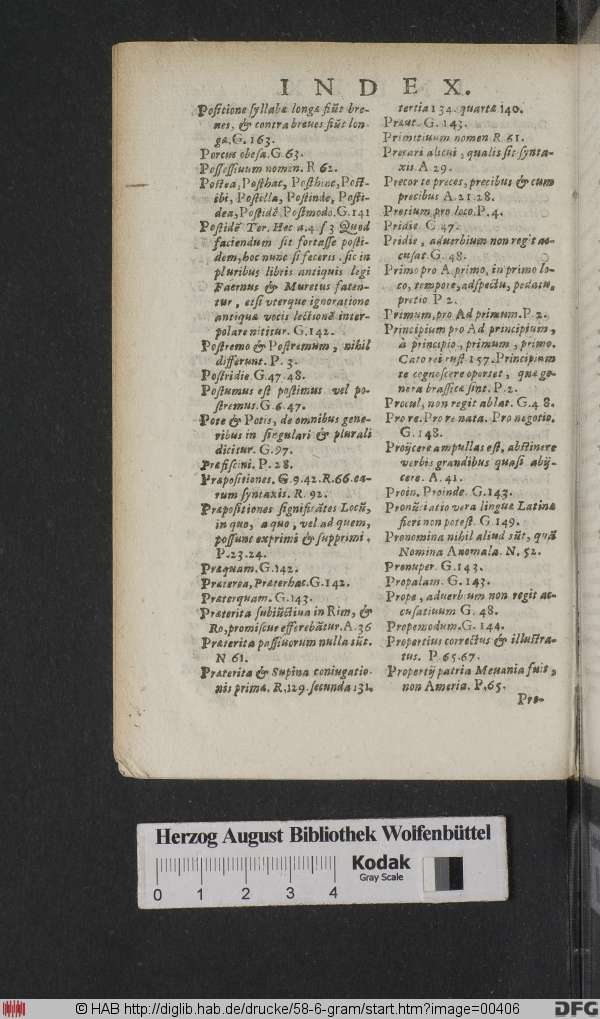 INDEX.
Positione syllabæ longæ fiũt bre-
ues, & contra breues fiũt lon
gæ. G. 163.
Porcus obesa. G 63.
Possessiuum nomen. R 62.
Postea, Posthac, Posthinc, Post-
ibi, Postilla, Postinde, Posti-
dea, Postidẽ Postmodo. G. 141
Postidẽ Ter. Hec a. 4. s 3 Quod
faciendum sit fortasse posti-
dem, hoc nunc si feceris. sic in
pluribus libris antiquis legi
Faernus & Muretus faten-
tur, etsi vterque ignoratione
antiquæ vocis lectionẽ inter-
polare nititur. G. 142.
Postremo & Postremum, nihil
differunt. P. 3.
Postridie. G. 47. 48.
Postumus est postimus vel po-
stremus. G. 6. 47.
Pote & Potis, de omnibus gene-
ribus in singulari & plurali
dicitur. G. 97.
Præfiscini. P. 28.
Præpositiones. G. 9. 42. R. 66. ea-
rum syntaxis. R. 92.
Præpositiones significãtes Locũ,
in quo, a quo, vel ad quem,
possunt exprimi & supprimi.
P. 23. 24.
Præquam. G. 142.
Præterea, Præterhac. G. 142.
Præterquam. G. 143.
Præterita subiũctiua in Rim, &
Ro, promiscue efferebãtur. A. 36
Præterita passiuorum nulla sũt.
N 61.
Præterita & Supina coniugatio-
nis primæ. R. 129. secundæ 131.
tertiæ 134. quartæ 140.
Præut. G. 143.
Primitiuum nomen R 61.
Precari alicui, qualis sit synta-
xis. A 29.
Precor te preces, precibus & cum
precibus A. 21. 28.
Pretium pro loco. P. 4.
Pridie G 47.
Pridie, aduerbium non regit ac-
cusat. G. 48.
Primo pro A primo, in primo lo-
co, tempore, adspectu, pedatu,
pretio P 2.
Primum, pro Ad primum. P. 2.
Principium pro Ad principium,
à principio, primum, primo.
Cato rei rust 157. Principium
te cognoscere oportet, quæ ge-
nera brassicæ sint. P. 2.
Procul, non regit ablat. G. 48.
Pro re. Pro re nata. Pro negotio.
G. 148.
Proijcere ampullas est, abstinere
verbis grandibus quasi abij-
cere. A. 41.
Proin. Proinde. G. 143.
Pronũtiatio vera linguæ Latinæ
fieri non potest. G 149.
Pronomina nihil aliud sũt, quã
Nomina Anomala. N. 52.
Pronuper. G. 143.
Propalam. G. 143.
Prope, aduerbium non regit ac-
cusatiuum G. 48.
Propemodum. G. 144.
Propertius correctus & illustra-
tus. P. 65. 67.
Propertij patria Meuania fuit,
non Ameria. P. 65.
Pro-
Herzog August Bibliothek Wolfenbüttel
Kodak
Gray Scale
0 1 2 3 4
© HAB http://diglib.hab.de/drucke/58-6-gram/start.htm?image=00406
DFG